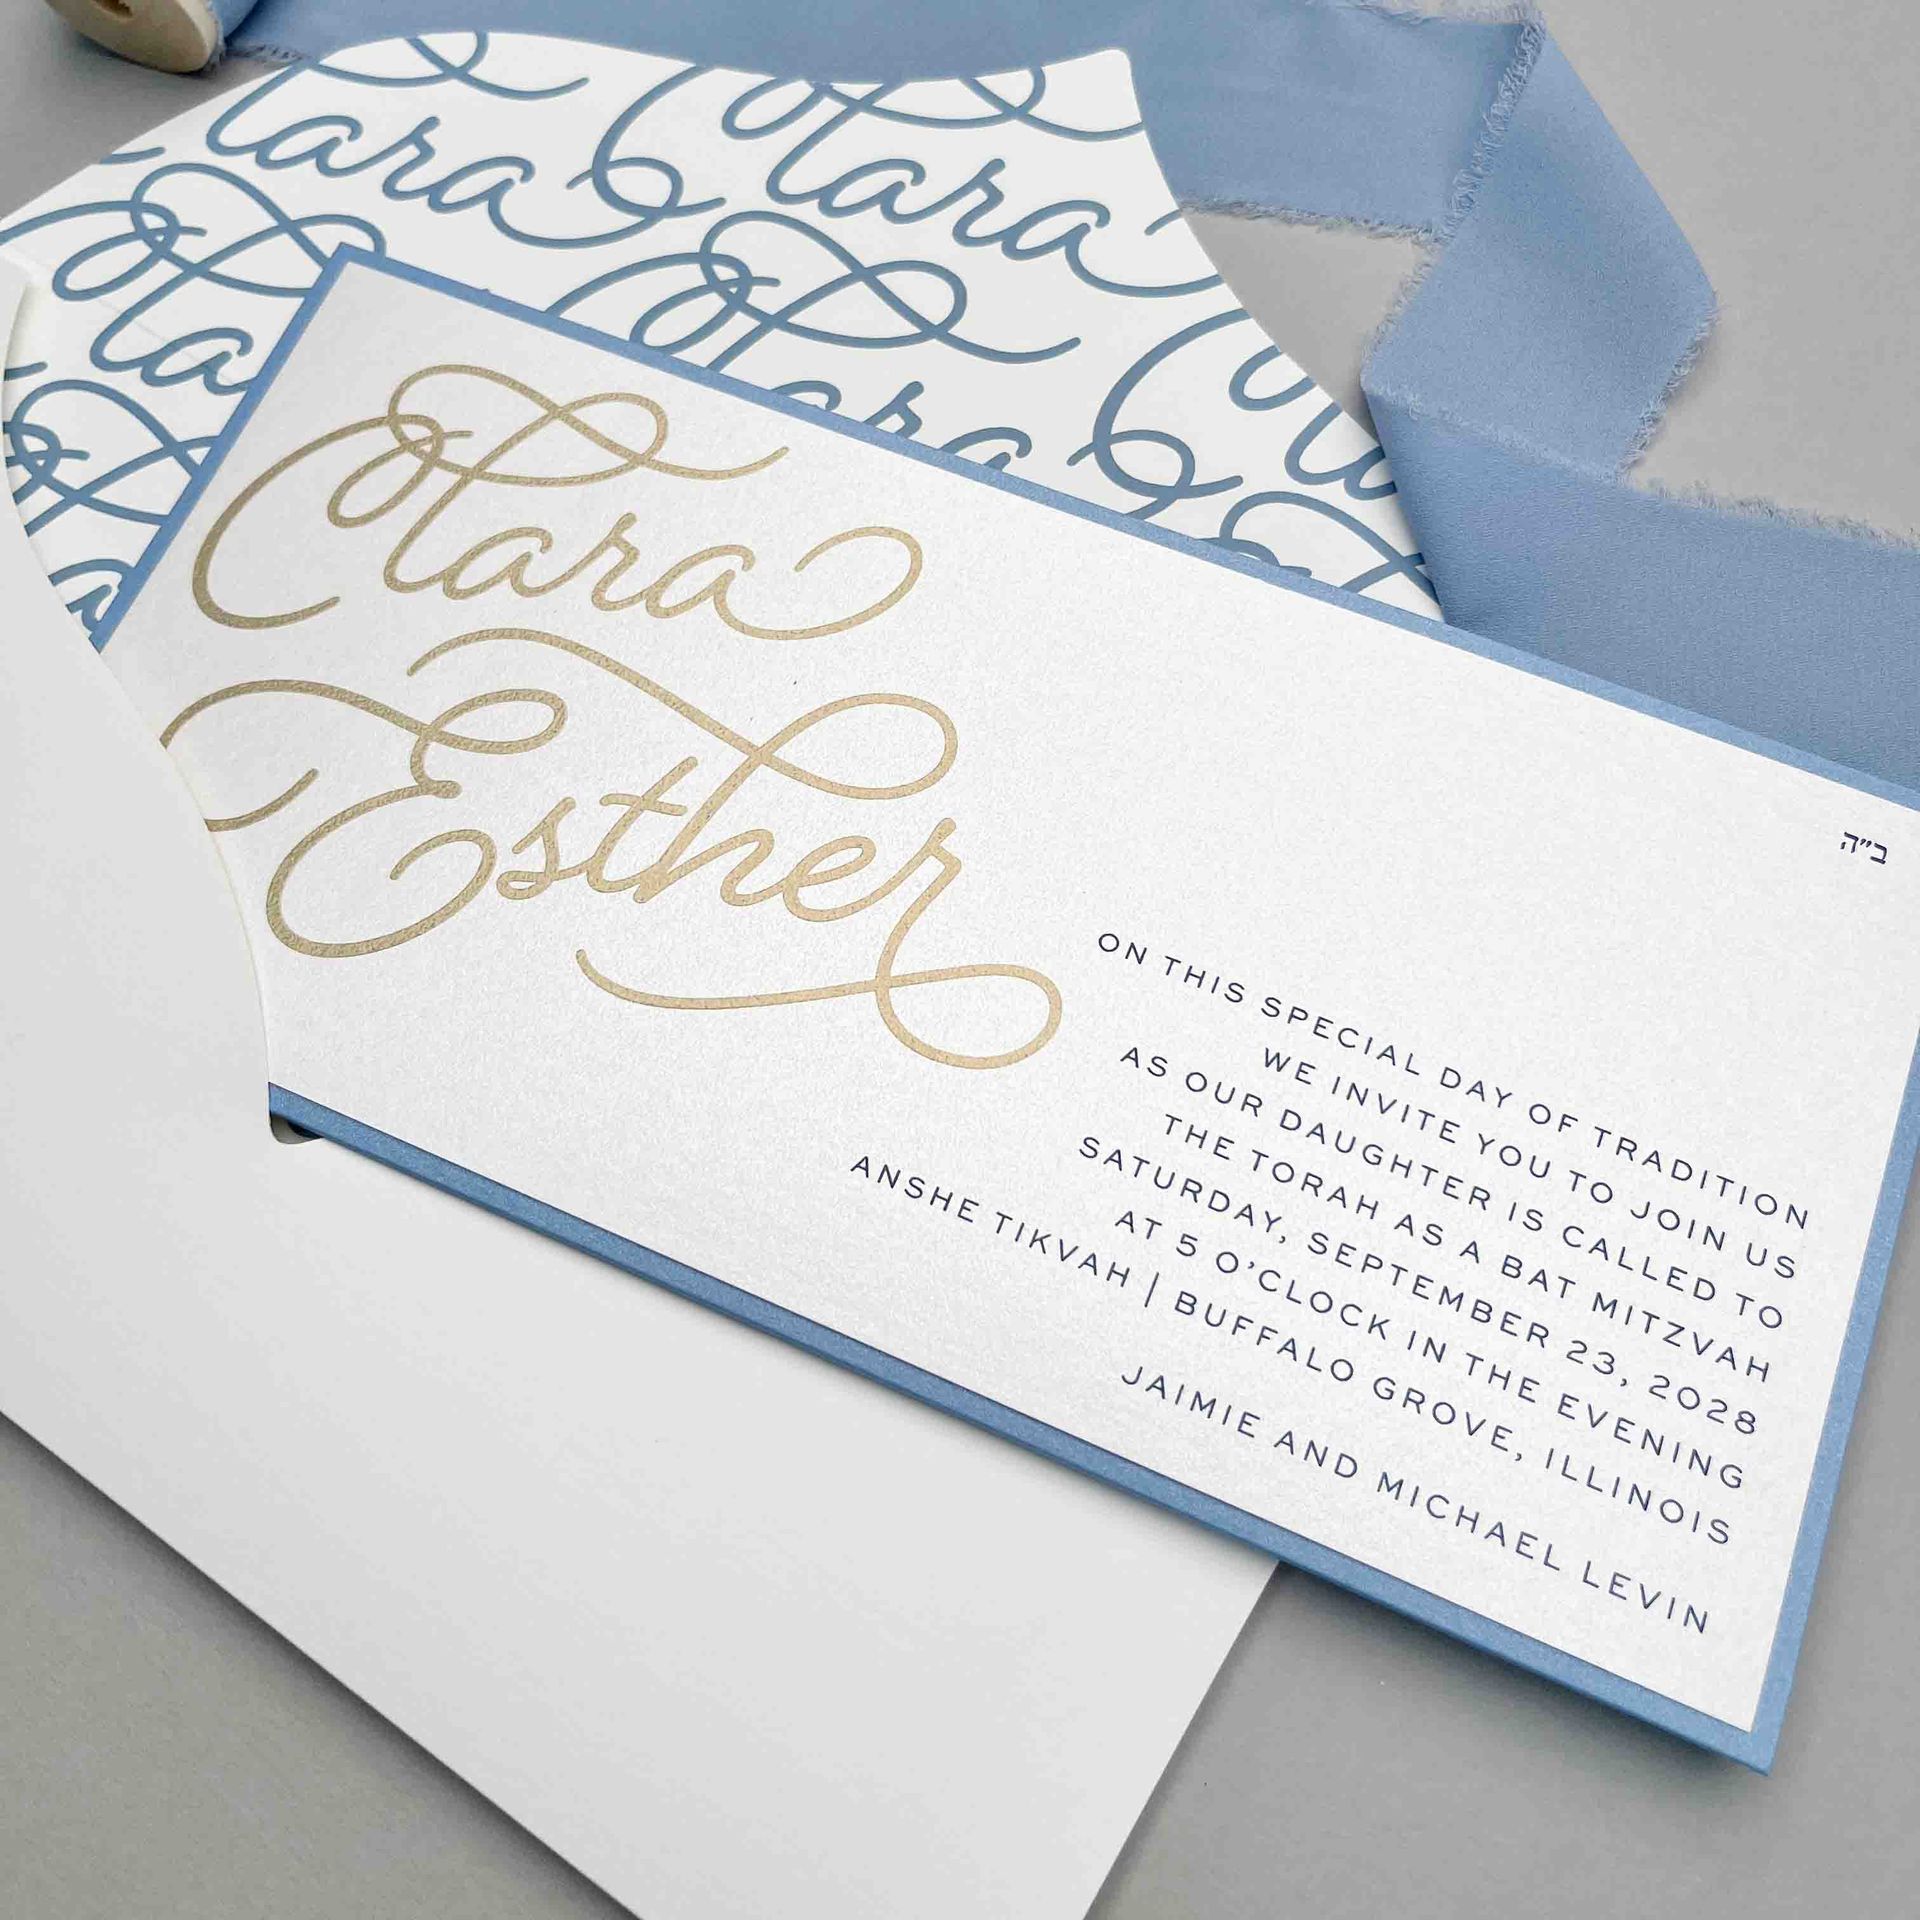 Clara
Clara
Clara
Clara
Esther
ב״ה
ON THIS SPECIAL DAY OF TRADITION
WE INVITE YOU TO JOIN US
AS OUR DAUGHTER IS CALLED TO
THE TORAH AS A BAT MITZVAH
SATURDAY, SEPTEMBER 23, 2028
AT 5 O'CLOCK IN THE EVENING
ANSHE TIKVAH | BUFFALO GROVE, ILLINOIS
JAIMIE AND MICHAEL LEVIN